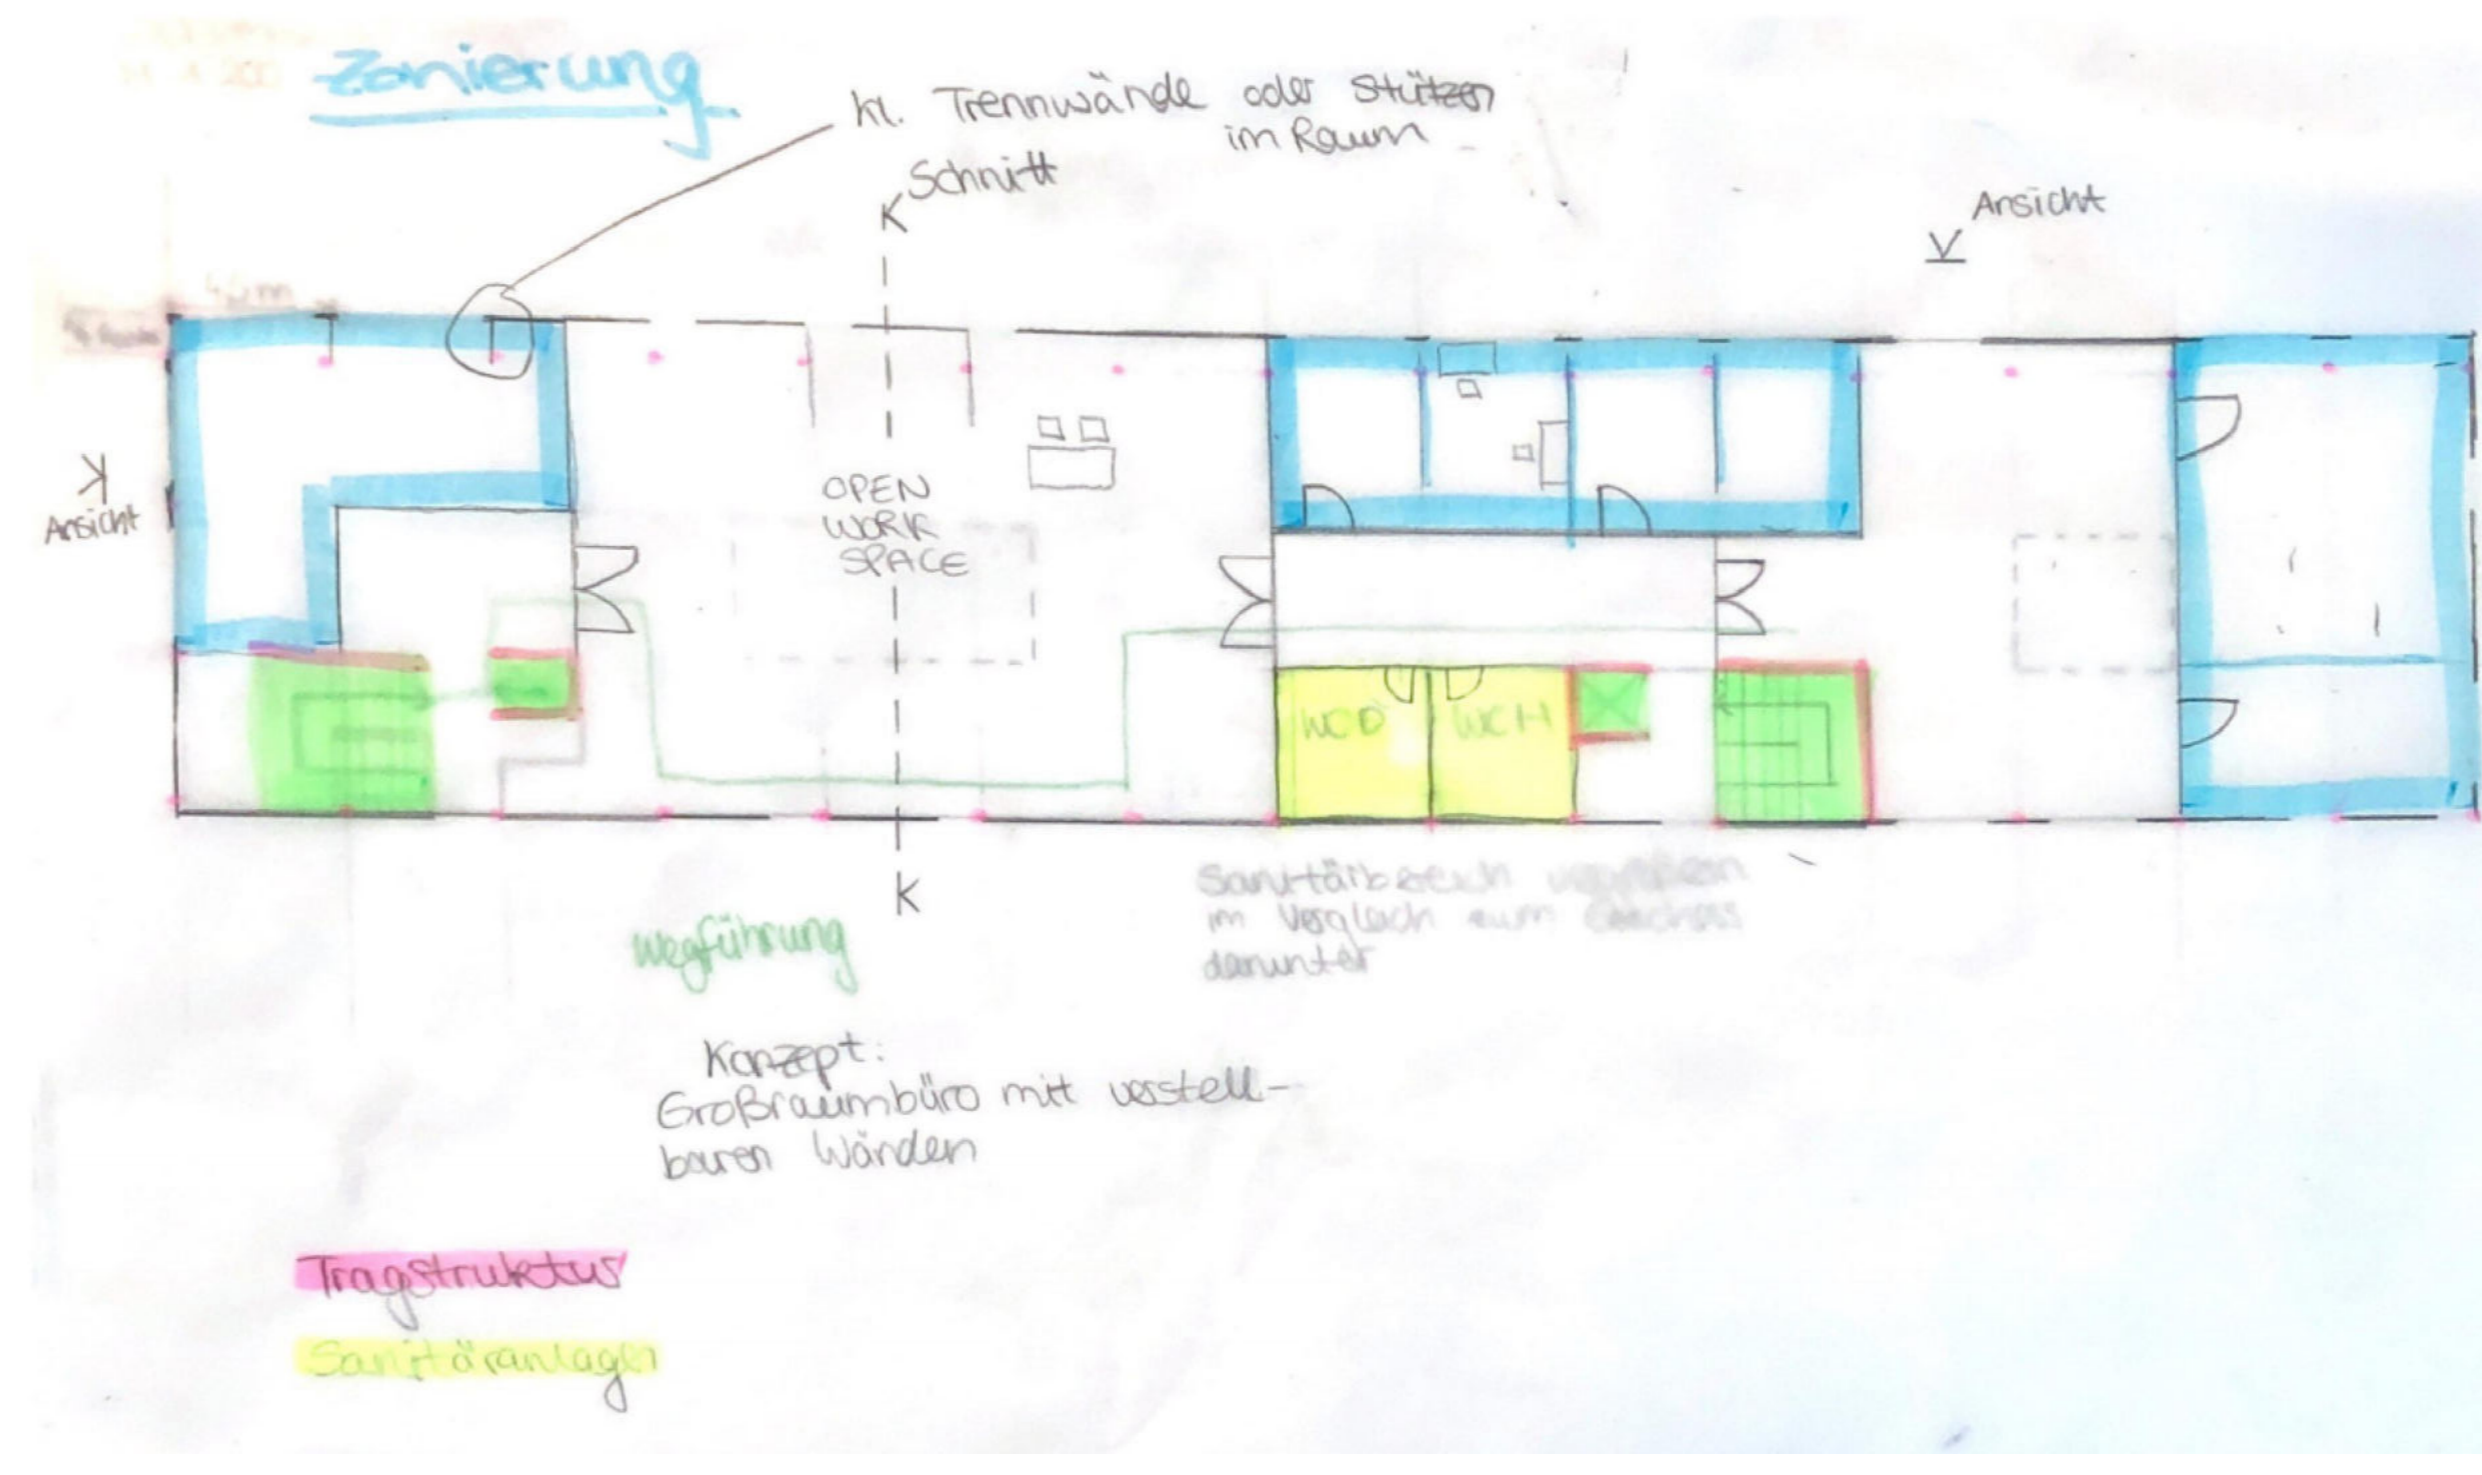 Zonierung
kl. Trennwände oder Stützen
im Raum
Schnitt
Ansicht
Ansicht
OPEN
WORK
SPACE
WC D
WC H
K
Wegführung
Sanitärbereich
im Vergleich zum Geschoss
darunter
Konzept:
Großraumbüro mit verstell-
baren Wänden
Tragstruktur
Sanitäranlagen